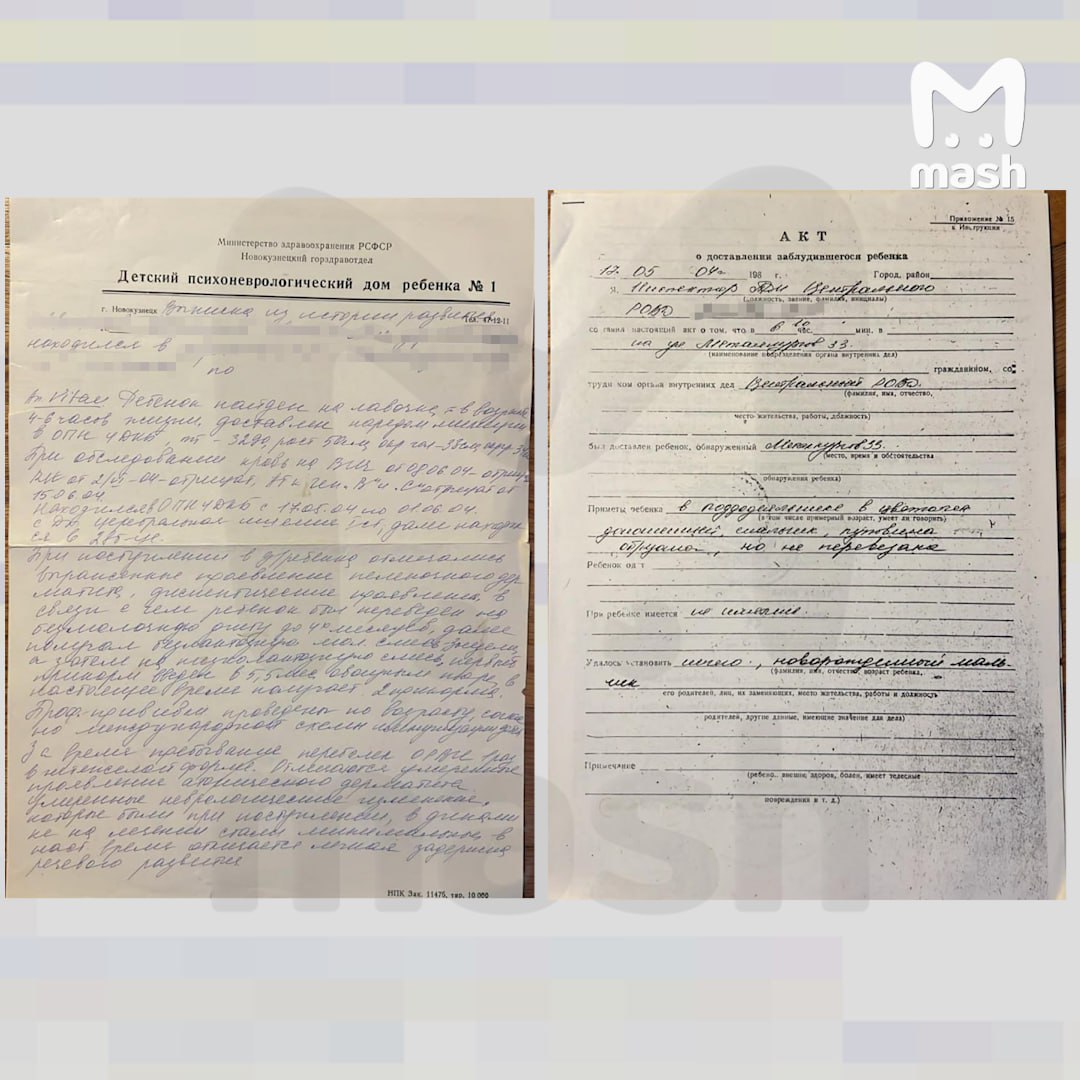 mash
Министерство здравоохранения РСФСР
Новокузнецкий горздравотдел
Детский психоневрологический дом ребенка № 1
г. Новокузнецк Выписка из истории развития
тел. 47-12-11
находился в
по
Ребенок найден на лавочке, в возрасте
4-6 часов жизни, доставлен нарядом милиции
в ОПН ЧДКБ, 3290, рост 50 см, окр гол - 33см,
При обследовании кровь на ВИЧ от 08.06.04 - отрицат
от 2/VI-04 - отрицат. "В" и "С" отрицат от
15.06.04
Находился в ОПН ЧДКБ с 17.05.04 по 01.06.04.
с церебральная ишемия I ст, далее находил
ся в
При поступлении в д/ребенка отмечались
выраженные проявления пеленочного дер
матита, диспептические проявления, в
связи с чем ребенок был переведен на
безмолочную диету до 4х месяцев, далее
получал
а затем на смесь, первый
прикорм введен в 5,5 мес овощным пюре, в
настоящее время получает 2 прикорма.
Проф. прививки проведены по возрасту, соглас
но международной схемы
За время пребывания перенес ОРВИ раз
в нетяжелой форме. Отмечаются умеренные
проявления атопического дерматита
умеренные неврологические
которые были при поступлении, в динами
ке на лечении стали минимальные в
наст. время отмечается легкая задержка
речевого развития
НПК Зак. 11475, тир. 10 000
Приложение № 15
к Инструкции
АКТ
о доставлении заблудившегося ребенка
17 05 04г 198 г. Город, район
Я, Инспектор Центрального
(должность, звание, фамилия, инициалы)
РОВД
составил настоящий акт о том, что в час. мин. в
на ул Металлургов 33.
(наименование подразделения органа внутренних дел)
гражданином, со
трудником органа внутренних дел Центральный РОВД
(фамилия, имя, отчество,
место жительства, работы, должность)
был доставлен ребенок, обнаруженный Металлургов 33.
(место, время и обстоятельства
обнаружения ребенка)
Приметы ребенка в пододеяльнике в цветочек
(в том числе примерный возраст, умеет ли говорить)
доношенный мальчик, пуповина
отрезана, но не перевязана
Ребенок од т
При ребенке имеется не имеется.
Удалось установить ничего, новорожденный маль-
(фамилия, имя, отчество, возраст ребенка,
чик
его родителей, лиц, их заменяющих, место жительства, работы и должность
родителей, другие данные, имеющие значение для дела)
Примечание
(ребенок внешне здоров, болен, имеет телесные
повреждения и т. д.)
mash